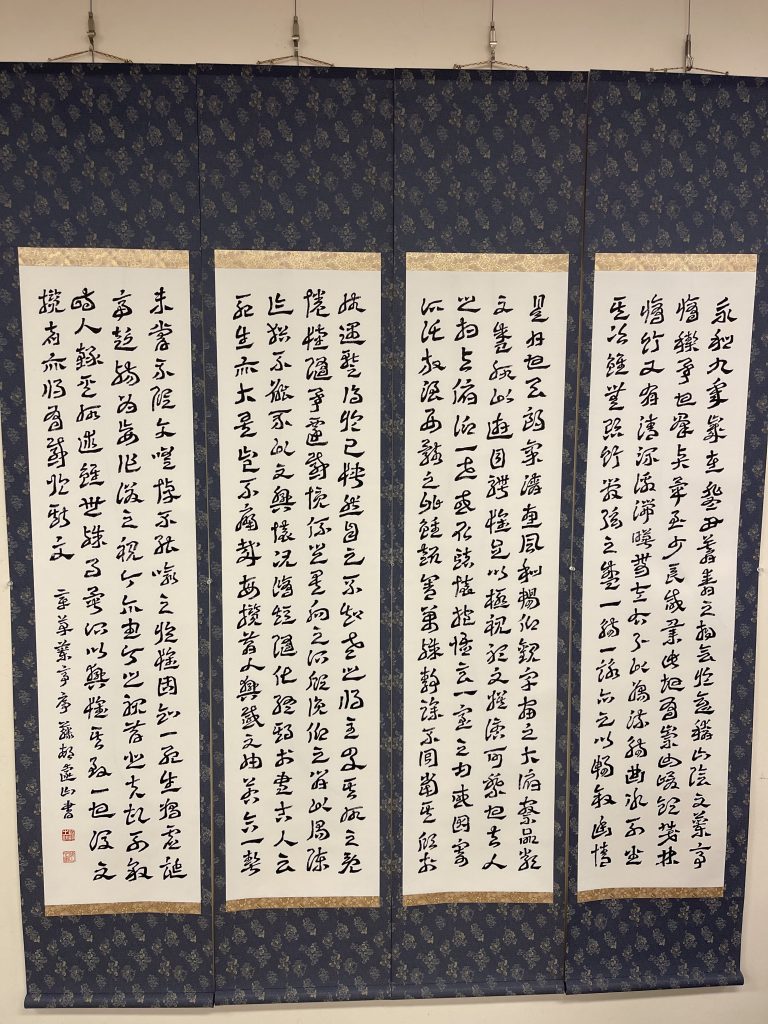 永和九年歲在癸丑暮春之初會於會稽山陰之蘭亭
脩稧事也羣賢畢至少長咸集此地有崇山峻領茂林
脩竹又有清流激湍暎帶左右引以為流觴曲水列坐
其次雖無絲竹管弦之盛一觴一詠亦足以暢敘幽情
是日也天朗氣清惠風和暢仰觀宇宙之大俯察品類
之盛所以遊目騁懷足以極視聽之娛信可樂也夫人
之相與俯仰一世或取諸懷抱悟言一室之內或因寄
所託放浪形骸之外雖趣舍萬殊靜躁不同當其欣於
所遇蹔得於己快然自足不知老之將至及其所之既
惓情隨事遷感慨係之矣向之所欣俛仰之閒以為陳
迹猶不能不以之興懷況脩短隨化終期於盡古人云
死生亦大矣豈不痛哉每攬昔人興感之由若合一契
未嘗不臨文嗟悼不能喻之於懷固知一死生為虛誕
齊彭殤為妄作後之視今亦由今之視昔悲夫故列敘
時人錄其所述雖世殊事異所以興懷其致一也後之
攬者亦將有感於斯文 章草蘭亭序 書